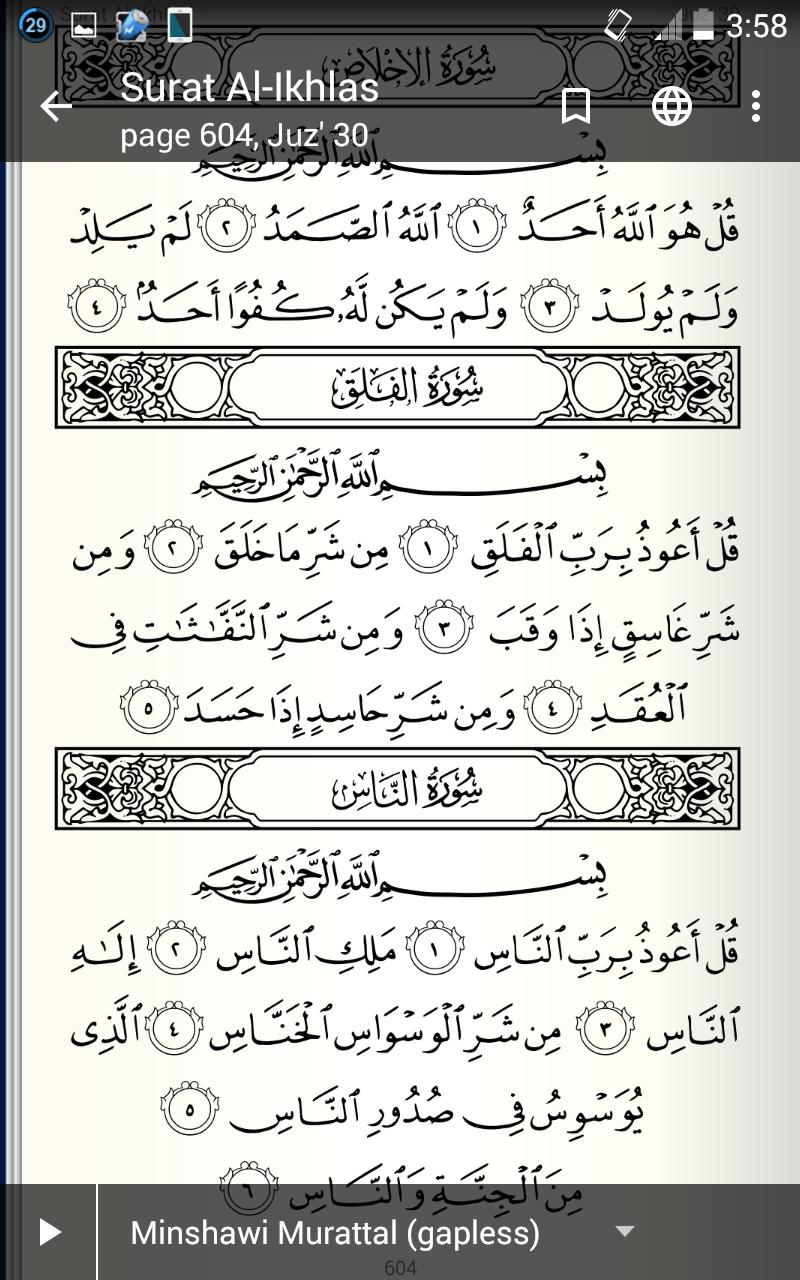 29 3:58
سُورَةُ الإِخْلَاصِ
Surat Al-Ikhlas
page 604, Juz' 30
بِسْمِ ٱللَّهِ ٱلرَّحْمَٰنِ ٱلرَّحِيمِ
قُلْ هُوَ ٱللَّهُ أَحَدٌ ١ ٱللَّهُ ٱلصَّمَدُ ٢ لَمْ يَلِدْ
وَلَمْ يُولَدْ ٣ وَلَمْ يَكُن لَّهُۥ كُفُوًا أَحَدٌۢ ٤
سُورَةُ الفَلَقِ
بِسْمِ ٱللَّهِ ٱلرَّحْمَٰنِ ٱلرَّحِيمِ
قُلْ أَعُوذُ بِرَبِّ ٱلْفَلَقِ ١ مِن شَرِّ مَا خَلَقَ ٢ وَمِن
شَرِّ غَاسِقٍ إِذَا وَقَبَ ٣ وَمِن شَرِّ ٱلنَّفَّٰثَٰتِ فِى
ٱلْعُقَدِ ٤ وَمِن شَرِّ حَاسِدٍ إِذَا حَسَدَ ٥
سُورَةُ النَّاسِ
بِسْمِ ٱللَّهِ ٱلرَّحْمَٰنِ ٱلرَّحِيمِ
قُلْ أَعُوذُ بِرَبِّ ٱلنَّاسِ ١ مَلِكِ ٱلنَّاسِ ٢ إِلَٰهِ
ٱلنَّاسِ ٣ مِن شَرِّ ٱلْوَسْوَاسِ ٱلْخَنَّاسِ ٤ ٱلَّذِى
يُوَسْوِسُ فِى صُدُورِ ٱلنَّاسِ ٥
مِنَ ٱلْجِنَّةِ وَٱلنَّاسِ ٦
Minshawi Murattal (gapless)
604